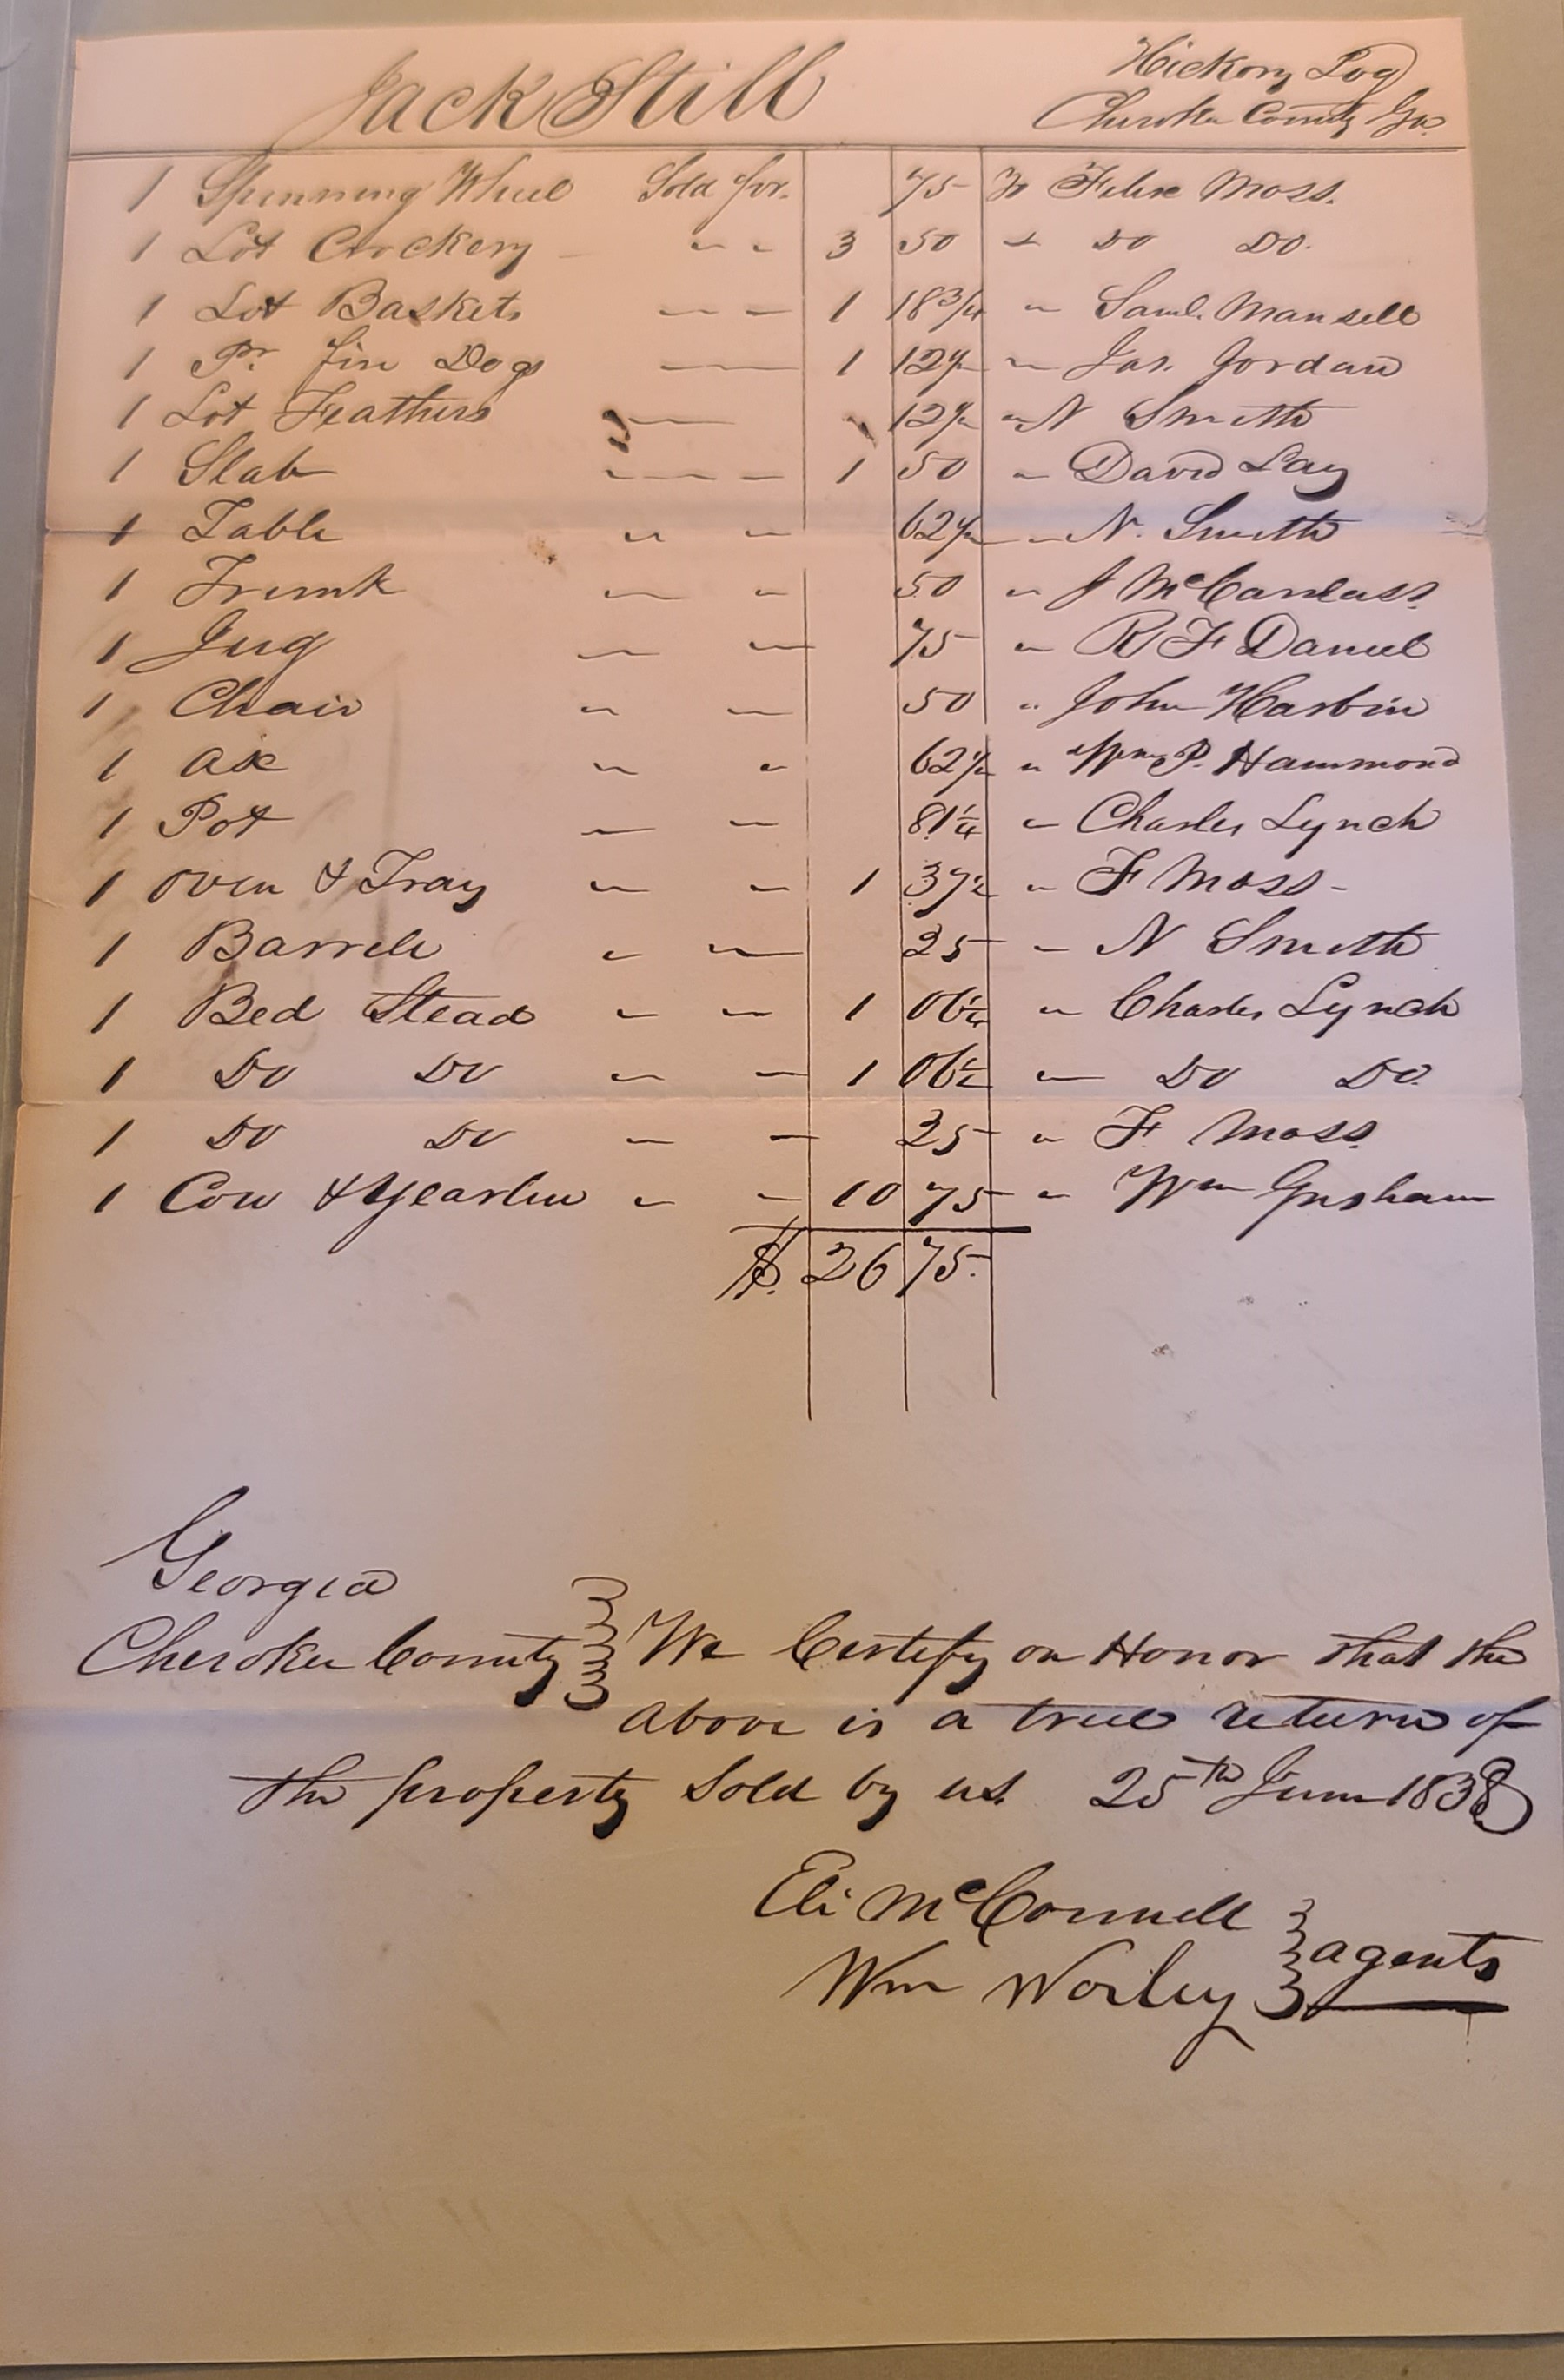 Jack Still
Hickory Log
Cherokee County Ga.
1 Spinning Wheel Sold for. 75 To Felix Moss.
1 Lot Crockery " " 3 50 " Do Do.
1 Lot Baskets " " 1 18 3/4 " Saml. Mansell
1 Pr. fire Dogs " " 1 12 1/2 " Jas. Jordan
1 Lot Feathers " 12 1/2 " N Smith
1 Slab " " 1 50 " David Lay
1 Table " " 62 1/2 " N. Smith
1 Trunk " " 50 " J McCanless
1 Jug " " 75 " R F Daniel
1 Chair " " 50 " John Harbin
1 ax " " 62 1/2 " Wm P. Hammond
1 Pot " " 81 1/4 " Charles Lynch
1 Oven & Tray " " 1 37 1/2 " F Moss -
1 Barrell " " 25 " N Smith
1 Bed Stead " " 1 06 1/4 " Charles Lynch
1 Do Do " " 1 06 1/4 " Do Do.
1 Do Do " " 25 " F. Moss.
1 Cow & Yearlin " " 10 75 " Wm Grisham
$. 26 75.
Georgia
Cherokee County We Certify on Honor that the
above is a true return of
the property Sold by us. 25th June 1838
Eli McConnell
Wm Worley agents